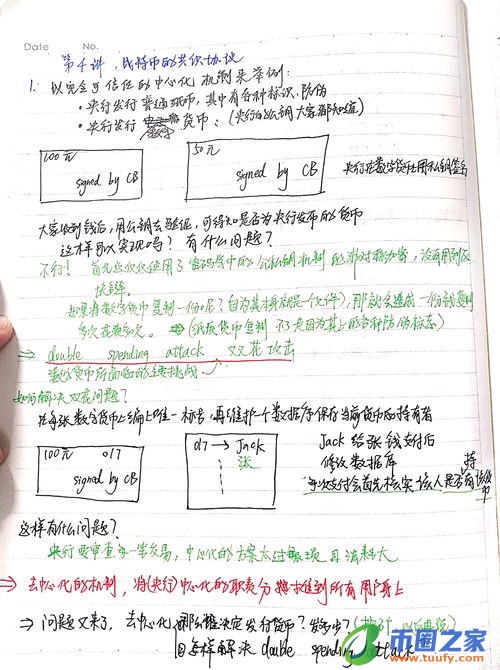 Date No.
第4讲，比特币的共识协议
1. 以完全可信任的中心化机制来举例:
· 央行发行普通纸币，其中有各种标识、防伪
· 央行发行 货币：(央行的公钥大家都知道)
100元
signed by CB
50元
signed by CB
央行在数字货币上用私钥签名
大家收到钱后，用公钥去验证，可得知是否为央行发布的货币
这样可以实现吗？有什么问题？
不行！首先这仅仅使用了密码学中的公私钥机制的非对称加密，没有用到区
块链。
如果将数字货币复制一份呢？(因为其本身就是一个文件)，那就会造成一份钱复制
多次花费多次。 ⇒ (纸质货币复制不了是因为其上的各种防伪标志)
⇒ double spending attack 双花攻击
数字货币所面临的主要挑战
如何解决双花问题？
给每张数字货币上编上唯一标号，再维护一个数据库保存当前货币的持有者
100元 017
signed by CB
017 → Jack
张
Jack 给张 钱 付后
修改数据库
每次支付会首先核实该人是否持有该货币
这样有什么问题？
央行要审查每一笔交易，中心化的方案太过繁琐且消耗大
⇒ 去中心化的机制，将(央行)中心化的职责分摊推进到所有用户身上
⇒ 问题又来了，去中心化，那么谁决定发行货币？发多少？
且怎样解决 double spending attack
币圈之家
www.tuufy.com